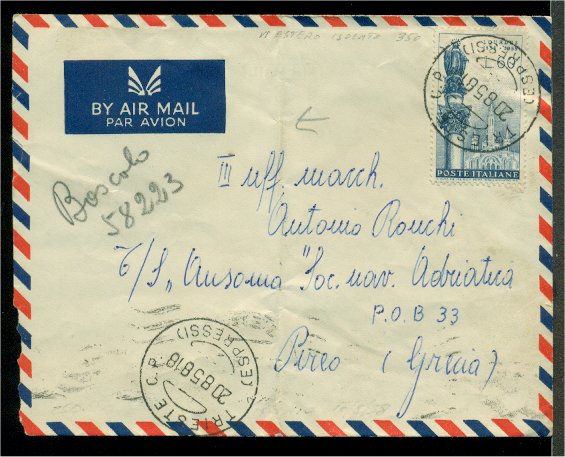 VI ESTERO ISOLATO 350
60
BY AIR MAIL
PAR AVION
TRIESTE C.P. (ESPRESSI)
20.8.58.18
POSTE ITALIANE
Boscolo
58223
III uff. macch.
Antonio Ronchi
T/S "Ausonia" Soc. nav. Adriatica
P.O.B 33
Pireo (Grecia)
TRIESTE C.P. (ESPRESSI)
20.8.58.18